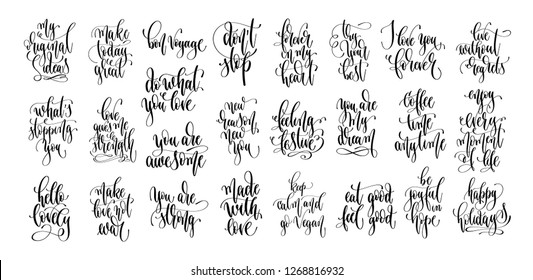 my
original
ideas
make
today
great
bon voyage
don't
stop
forever
in my
heart
try
your
best
I love you
forever
live
without
regrets
do what
you love
what's
stopping
you
love
gives me
strength
you are
awesome
new
season,
new
you
feeling
festive
you are
my
dream
coffee
time
anytime
enjoy
every
moment
of life
hello
lovely
make
love not
war
you are
strong
made
with
love
keep
calm and
go vegan
eat good
feel good
be
joyful
in
hope
happy
holidays
shutterstock
IMAGE ID: 1268816932
www.shutterstock.com